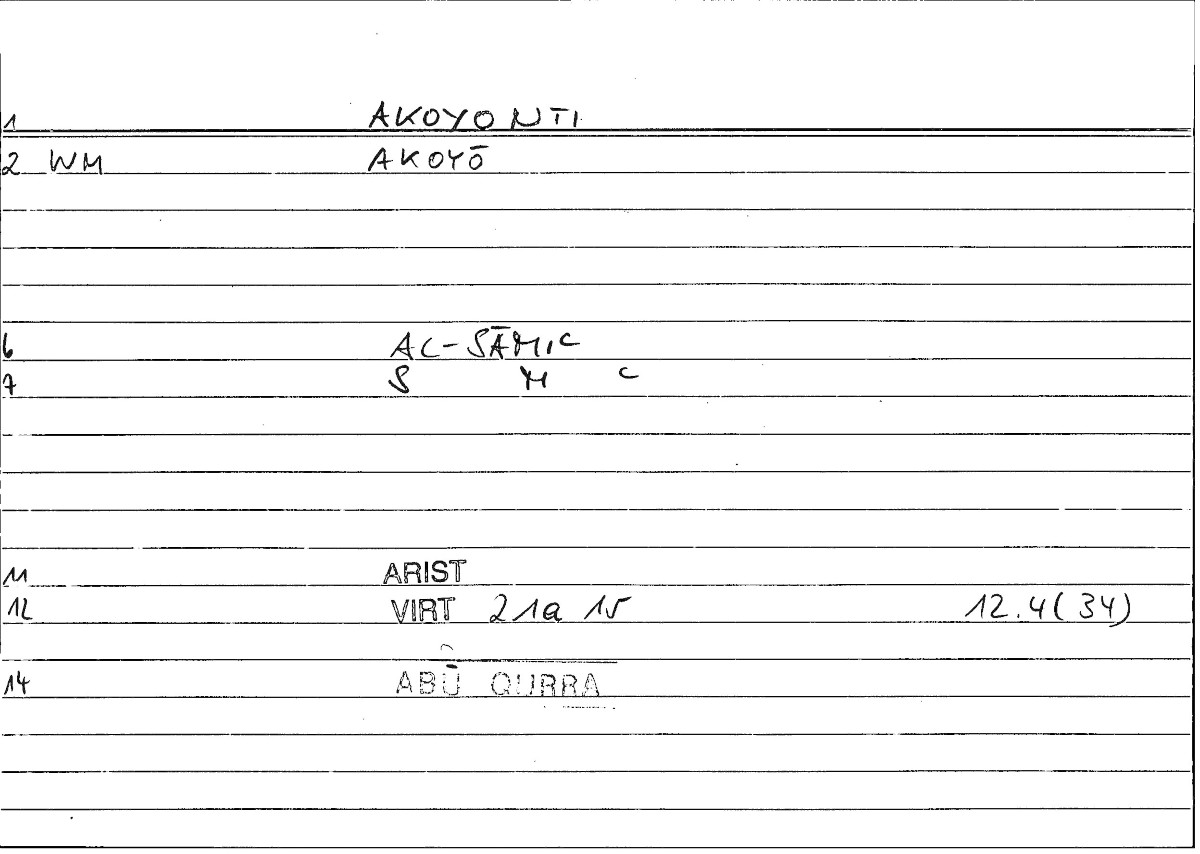 1 AKOYONTI
2 WM AKOYŌ
6 AL-SĀMIC
7 S M C
11 ARIST
12 VIRT 21a 15 12.4(34)
14 ABŪ QURRA